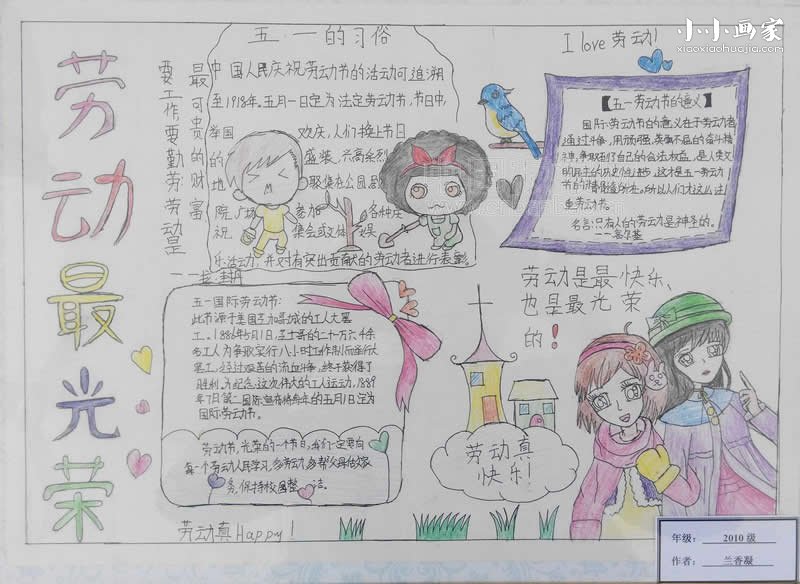 小小画家
xiaoxiaohuajia.com
劳动最光荣
五·一的习俗
I love 劳动!
要工作要勤劳劳动是
最可贵的财富
中国人民庆祝劳动节的活动可追溯
至1918年。五月一日定为法定劳动节,节日中,
举国欢庆,人们换上节日
的盛装,兴高采烈
地聚集在公园
院、广场参加各种庆
祝集会或文体娱
乐活动,并对有突出贡献的劳动者进行表彰
【五一劳动节的意义】
国际劳动节的意义在于劳动者
通过斗争,用顽强、英勇不屈的奋斗精
神,争取到了自己的合法权益,是人类文
明民主的历史性进步,这才是五一劳动
节的精髓所在。所以人们才这么注
重劳动节。
名言:只有人的劳动是神圣的。
——高尔基
劳动是最快乐、
也是最光荣
的!
五一国际劳动节:
此节源于美国芝加哥城的工人大罢
工。1886年5月1日,芝加哥的二十一万六千余
名工人为争取实行八小时工作制而举行大
罢工,经过艰苦的流血斗争,终于获得了
胜利。为纪念这次伟大的工人运动,1889
年7月第二国际宣布将每年的五月1日定为
国际劳动节。
劳动节,光荣的一个节日,我们一定要向
每一个劳动人民学习,多劳动,多帮父母做家
务,保持校园整洁。
劳动真
快乐!
劳动真Happy!
年级: 2010级
作者: 兰香凝